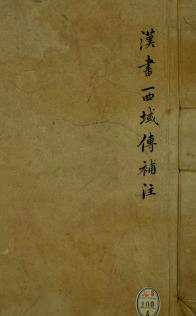 漢書西域傳補注